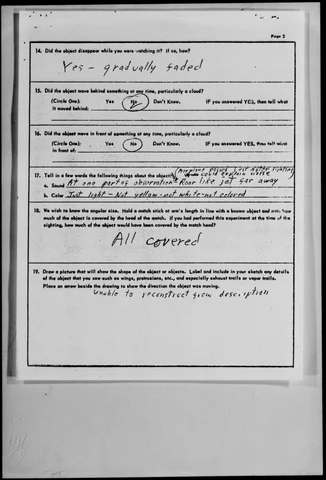 Page 3
14. Did the object disappear while you were watching it? If so, how?
Yes - gradually faded
15. Did the object move behind something at any time, particularly a cloud?
(Circle One): Yes No Don't Know. IF you answered YES, then tell what
it moved behind:
16. Did the object move in front of something at any time, particularly a cloud?
(Circle One): Yes No Don't Know. IF you answered YES, then tell what
in front of:
(Airplane passed just after sighting
17. Tell in a few words the following things about the object: could explain noise
a. Sound At one part of observation Roar like jet far away
b. Color Just light - Not yellow - not white - not colored
18. We wish to know the angular size. Hold a match stick at arm's length in line with a known object and note how
much of the object is covered by the head of the match. If you had performed this experiment at the time of the
sighting, how much of the object would have been covered by the match head?
All covered
19. Draw a picture that will show the shape of the object or objects. Label and include in your sketch any details
of the object that you saw such as wings, protrusions, etc., and especially exhaust trails or vapor trails.
Place an arrow beside the drawing to show the direction the object was moving.
Unable to reconstruct from description